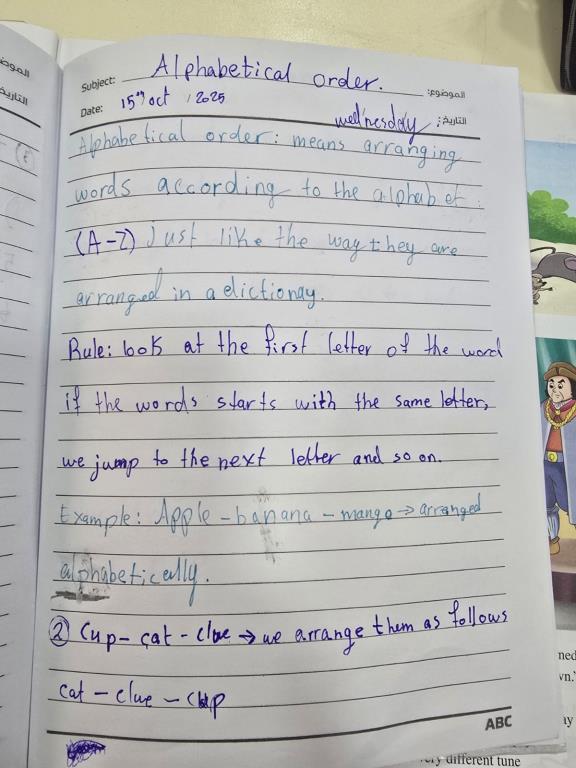 Subject: Alphabetical order. الموضوع:
Date: 15th oct / 2025 wednesday التاريخ:
Alphabetical order: means arranging
words according to the alphabet.
(A-Z) Just like the way they are
arranged in a dictionay.
Rule: look at the first letter of the word
if the words starts with the same letter,
we jump to the next letter and so on.
Example: Apple - banana - mango → arranged
alphabetically.
② Cup - cat - clue → we arrange them as follows
cat - clue - cup
ABC
very different tune